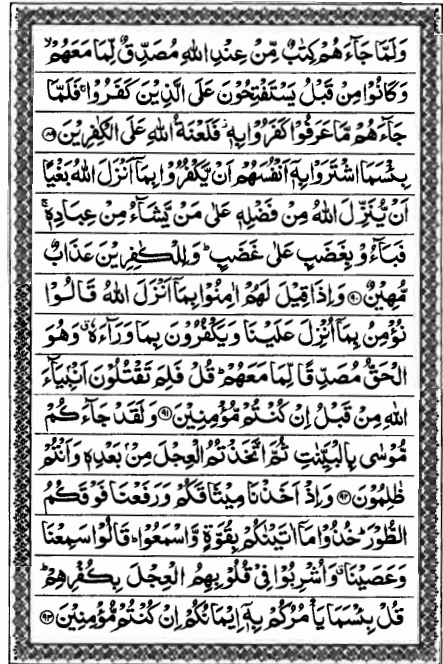 وَلَمَّا جَآءَهُمۡ كِتٰبٌ مِّنۡ عِنۡدِ اللّٰهِ مُصَدِّقٌ لِّمَا مَعَهُمۡ ۙ
وَكَانُوۡا مِنۡ قَبۡلُ يَسۡتَفۡتِحُوۡنَ عَلَى الَّذِيۡنَ كَفَرُوۡا ۚ فَلَمَّا
جَآءَهُمۡ مَّا عَرَفُوۡا كَفَرُوۡا بِهٖ ۫ فَلَعۡنَةُ اللّٰهِ عَلَى الۡكٰفِرِيۡنَ ﴿۸۹﴾
بِئۡسَمَا اشۡتَرَوۡا بِهٖۤ اَنۡفُسَهُمۡ اَنۡ يَّكۡفُرُوۡا بِمَآ اَنۡزَلَ اللّٰهُ بَغۡيًا
اَنۡ يُّنَزِّلَ اللّٰهُ مِنۡ فَضۡلِهٖ عَلٰى مَنۡ يَّشَآءُ مِنۡ عِبَادِهٖ ۚ
فَبَآءُوۡ بِغَضَبٍ عَلٰى غَضَبٍ ؕ وَلِلۡكٰفِرِيۡنَ عَذَابٌ
مُّهِيۡنٌ ﴿۹۰﴾ وَاِذَا قِيۡلَ لَهُمۡ اٰمِنُوۡا بِمَآ اَنۡزَلَ اللّٰهُ قَالُوۡا
نُؤۡمِنُ بِمَآ اُنۡزِلَ عَلَيۡنَا وَيَكۡفُرُوۡنَ بِمَا وَرَآءَهٗ ۗ وَهُوَ
الۡحَقُّ مُصَدِّقًا لِّمَا مَعَهُمۡ ؕ قُلۡ فَلِمَ تَقۡتُلُوۡنَ اَنۡۢبِيَآءَ
اللّٰهِ مِنۡ قَبۡلُ اِنۡ كُنۡتُمۡ مُّؤۡمِنِيۡنَ ﴿۹۱﴾ وَلَقَدۡ جَآءَكُمۡ
مُّوۡسٰى بِالۡبَيِّنٰتِ ثُمَّ اتَّخَذۡتُمُ الۡعِجۡلَ مِنۡۢ بَعۡدِهٖ وَاَنۡتُمۡ
ظٰلِمُوۡنَ ﴿۹۲﴾ وَاِذۡ اَخَذۡنَا مِيۡثَاقَكُمۡ وَرَفَعۡنَا فَوۡقَكُمُ
الطُّوۡرَ ؕ خُذُوۡا مَآ اٰتَيۡنٰكُمۡ بِقُوَّةٍ وَّاسۡمَعُوۡا ؕ قَالُوۡا سَمِعۡنَا
وَعَصَيۡنَا ۗ وَاُشۡرِبُوۡا فِىۡ قُلُوۡبِهِمُ الۡعِجۡلَ بِكُفۡرِهِمۡ ؕ
قُلۡ بِئۡسَمَا يَاۡمُرُكُمۡ بِهٖۤ اِيۡمَانُكُمۡ اِنۡ كُنۡتُمۡ مُّؤۡمِنِيۡنَ ﴿۹۳﴾